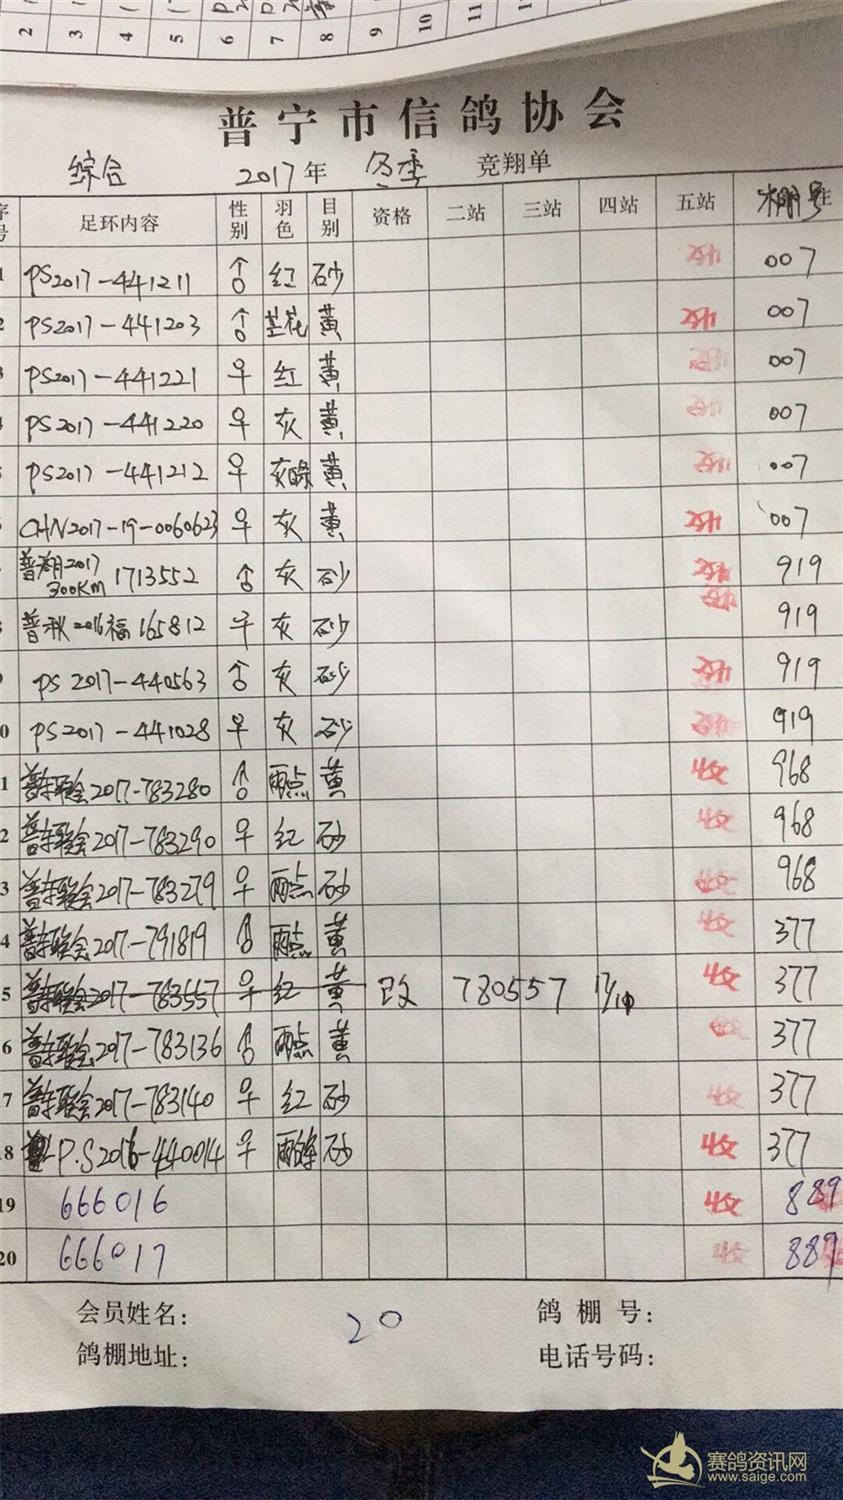 2 3 4 5 6 7 8 9 10 11
普宁市信鸽协会
综合 2017年 冬季 竞翔单
序号 足环内容 性别 羽色 目别 资格 二站 三站 四站 五站 棚号
1 PS2017-441211 ♂ 红 砂 收 007
2 PS2017-441203 ♂ 花 黄 收 007
3 PS2017-441221 ♀ 红 黄 收 007
4 PS2017-441220 ♀ 灰 黄 收 007
5 PS2017-441212 ♀ 灰 黄 收 007
6 CHN2017-19-0060623 ♀ 灰 黄 收 007
7 普翔2017 300KM 1713552 ♂ 灰 砂 收 919
8 普秋2016福165812 ♀ 灰 砂 收 919
9 PS 2017-440563 ♂ 灰 砂 收 919
10 PS2017-441028 ♀ 灰 砂 收 919
11 普东联会2017-783280 ♂ 雨点 黄 收 968
12 普东联会2017-783290 ♀ 红 砂 收 968
13 普东联会2017-783279 ♀ 雨点 砂 收 968
14 普东联会2017-791819 ♂ 雨点 黄 收 377
15 普东联会2017-783557 ♀ 红 黄 改 780557 17/10 收 377
16 普东联会2017-783136 ♂ 雨点 黄 收 377
17 普东联会2017-783140 ♀ 红 砂 收 377
18 P.S2016-440014 ♀ 砂 收 377
19 666016 收 889
20 666017 收 889
会员姓名: 20 鸽棚号:
鸽棚地址: 电话号码:
赛鸽资讯网
www.saige.com